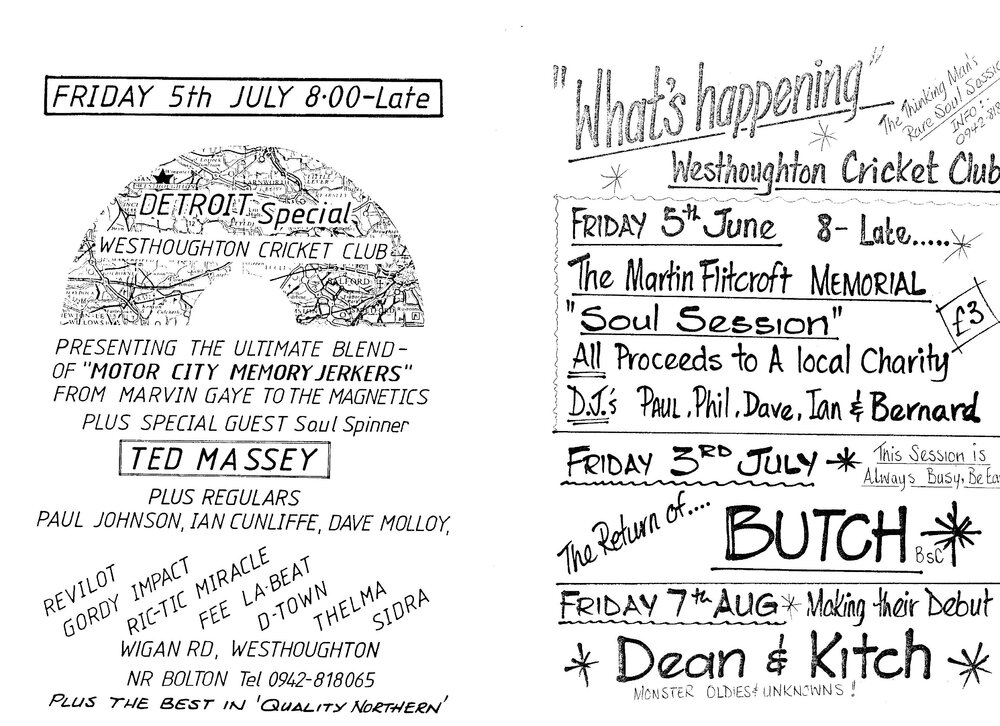 FRIDAY 5th JULY 8·00-Late
DETROIT Special
WESTHOUGHTON CRICKET CLUB
PRESENTING THE ULTIMATE BLEND-
OF "MOTOR CITY MEMORY JERKERS"
FROM MARVIN GAYE TO THE MAGNETICS
PLUS SPECIAL GUEST Soul Spinner
TED MASSEY
PLUS REGULARS
PAUL JOHNSON, IAN CUNLIFFE, DAVE MOLLOY,
REVILOT
GORDY IMPACT
RIC-TIC MIRACLE
FEE LA-BEAT
D-TOWN
THELMA
SIDRA
WIGAN RD, WESTHOUGHTON
NR BOLTON Tel 0942-818065
PLUS THE BEST IN 'QUALITY NORTHERN'
"What's happening"
The Thinking Man's
Rare Soul Session
INFO:-
0942-818
Westhoughton Cricket Club
FRIDAY 5th June 8- Late.....
The Martin Flitcroft MEMORIAL
"Soul Session"
£3
All Proceeds to A local Charity
D.J.'s PAUL, Phil, Dave, Ian & Bernard
FRIDAY 3RD JULY
This Session is
Always Busy, Be Ea
The Return of....
BUTCH BSC
FRIDAY 7th AUG Making their Debut
Dean & Kitch
MONSTER OLDIES & UNKNOWNS!